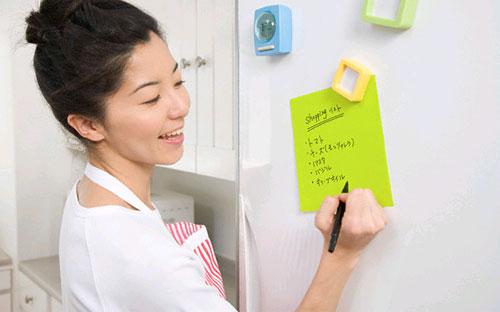 Shopping リスト
・トマト
・チーズ(モッツァレラ)
・パスタ
・バジル
・オリーブオイル